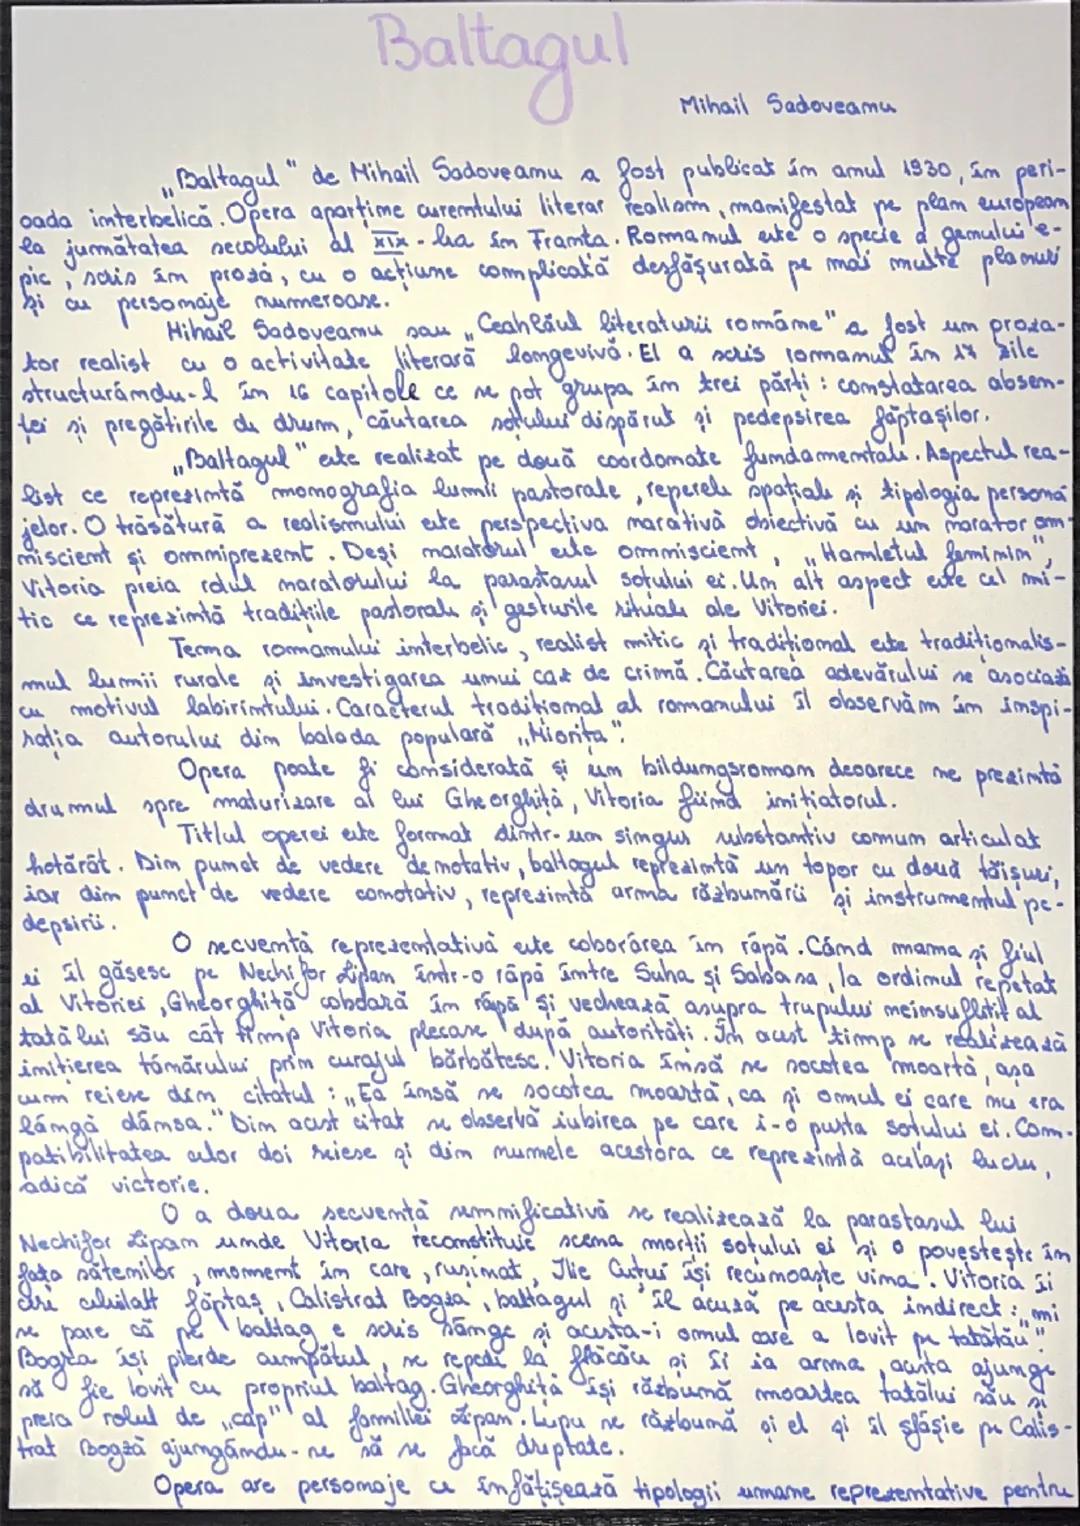 Baltagul
Mihail Sadoveanu
„Baltagul" de Mihail Sadoveanu a fost publicat în anul 1930, în peri-
oada interbelică. Opera aparține curentului literar realism, manifestat pe plan european
la jumătatea secolului al XIX-lea în Franta. Romanul este o specie a genului e-
pic, scris în proză, cu o acțiune complicată desfășurată pe mai multe planuri
și cu personaje numeroase.
Mihail Sadoveanu sau „Ceahlăul literaturii române" a fost un proza-
tor realist cu o activitate literară longevivă. El a scris romanul în 17 zile
structurându-l în 16 capitole ce se pot grupa în trei părți: constatarea absen-
ței și pregătirile de drum, căutarea soțului dispărut și pedepsirea făptașilor.
„Baltagul" este realizat pe două coordonate fundamentale. Aspectul rea-
list ce reprezintă monografia lumii pastorale, reperele spațiale și tipologia persona
jelor. O trăsătură a realismului este perspectiva narativă obiectivă cu un narator om-
niscient și omniprezent. Deși naratorul este omniscient, „Hamletul feminin",
Vitoria preia rolul naratorului la parastasul soțului ei. Un alt aspect este cel mi-
tic ce reprezintă tradițiile pastorale și gesturile rituale ale Vitoriei.
Tema romanului interbelic, realist mitic și tradițional este tradiționalis-
mul lumii rurale și investigarea unui caz de crimă. Căutarea adevărului se asociază
cu motivul labirintului. Caracterul tradițional al romanului îl observăm în inspi-
rația autorului din balada populară „Miorița".
Opera poate fi considerată și un bildungsroman deoarece ne prezintă
drumul spre maturizare al lui Gheorghiță, Vitoria fiind inițiatorul.
Titlul operei este format dintr-un singur substantiv comun articulat
hotărât. Din punct de vedere denotativ, baltagul reprezintă un topor cu două tăișuri,
iar din punct de vedere conotativ, reprezintă arma răzbunării și instrumentul pe-
depsirii.
O secvență reprezentativă este coborârea în râpă. Când mama și fiul
ei îl găsesc pe Nechifor Lipan într-o râpă între Suha și Sabasa, la ordinul repetat
al Vitoriei, Gheorghiță coboară în râpă și veghează asupra trupului neînsuflețit al
tatălui său cât timp Vitoria plecase după autorități. În acest timp se realizează
inițierea tânărului prin curajul bărbătesc. Vitoria însă se socotea moartă, așa
cum reiese din citatul: „Ea însă se socotea moartă, ca și omul ei care nu era
lângă dânsa." Din acest citat se observă iubirea pe care i-o purta soțului ei. Com-
patibilitatea celor doi reiese și din numele acestora ce reprezintă același lucru,
adică victorie.
O a doua secvență semnificativă se realizează la parastasul lui
Nechifor Lipan unde Vitoria reconstituie scena morții soțului ei și o povestește în
fața sătenilor, moment în care, rușinat, Ilie Cuțui își recunoaște vina. Vitoria îi
cere celuilalt făptaș, Calistrat Bogza, baltagul și îl acuză pe acesta indirect: „mi
se pare că pe baltag e scris sânge și acesta-i omul care a lovit pe tatătău".
Bogza își pierde cumpătul, se repede la flăcău și îi ia arma, acesta ajunge
să fie lovit cu propriul baltag. Gheorghiță își răzbună moartea tatălui său și
preia rolul de „cap" al familiei Lipan. Lupu se răzbună și el și îl sfâșie pe Calis-
trat Bogză ajungându-se să se facă dreptate.
Opera are personaje ce înfățișează tipologii umane reprezentative pentru